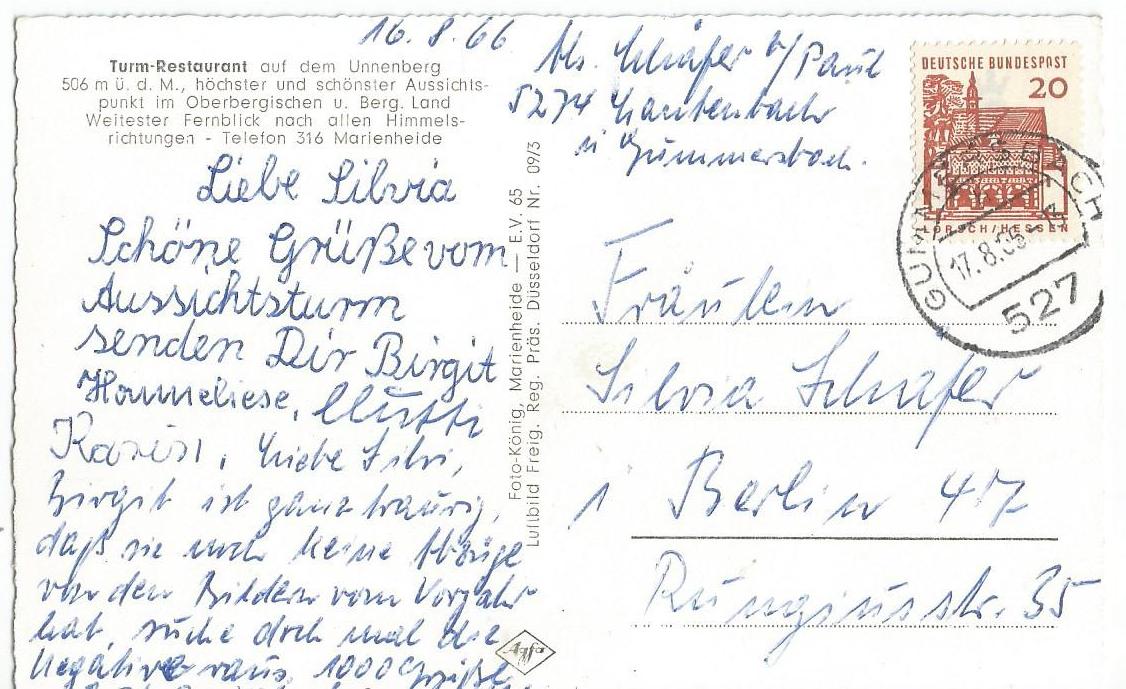 16.8.66
Turm-Restaurant auf dem Unnenberg
506 m ü. d. M., höchster und schönster Aussichts-
punkt im Oberbergischen u. Berg. Land
Weitester Fernblick nach allen Himmels-
richtungen - Telefon 316 Marienheide
Liebe Silvia
Schöne Grüße vom
Aussichtsturm
senden Dir Birgit
Hanneliese, Mutti
Karin, Liebe Silvi,
Birgit ist ganz traurig,
daß sie noch keine Abzüge
von den Bildern vom Vorjahr
hat, suche doch mal die
Negative raus. 1000 Grüße
Foto-König, Marienheide — E.V. 65
Luftbild Freig. Reg. Präs. Düsseldorf Nr. 09/3
Agfa
Schäfer b/ Paul
5274 Lantenbach
ü Gummersbach.
DEUTSCHE BUNDESPOST
20
LORSCH/HESSEN
GUMMERSBACH
17.8.66-13
527
Fräulein
Silvia Schäfer
1 Berlin 47
Rungiusstr. 35